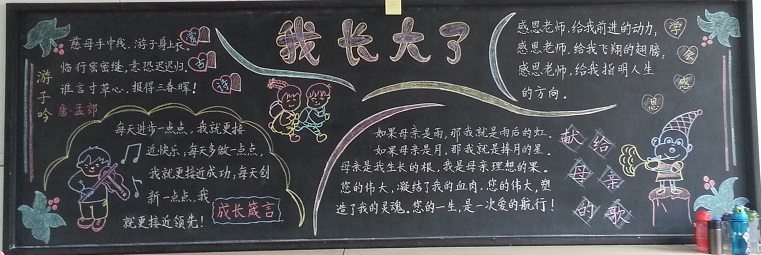 我长大了
游子吟
慈母手中线，游子身上衣。
临行密密缝，意恐迟迟归。
谁言寸草心，报得三春晖！
唐·孟郊
每天进步一点点，我就更接
近快乐，每天多做一点点，
我就更接近成功，每天创
新一点点，我
就更接近领先！
成长箴言
感恩老师，给我前进的动力，
感恩老师，给我飞翔的翅膀，
感恩老师，给我指明人生
的方向。
学
会
感
恩
如果母亲是雨，那我就是雨后的虹。
如果母亲是月，那我就是捧月的星。
母亲是我生长的根，我是母亲理想的果。
您的伟大，凝结了我的血肉，您的伟大，塑
造了我的灵魂。您的一生，是一次爱的航行！
献给
母亲
的歌